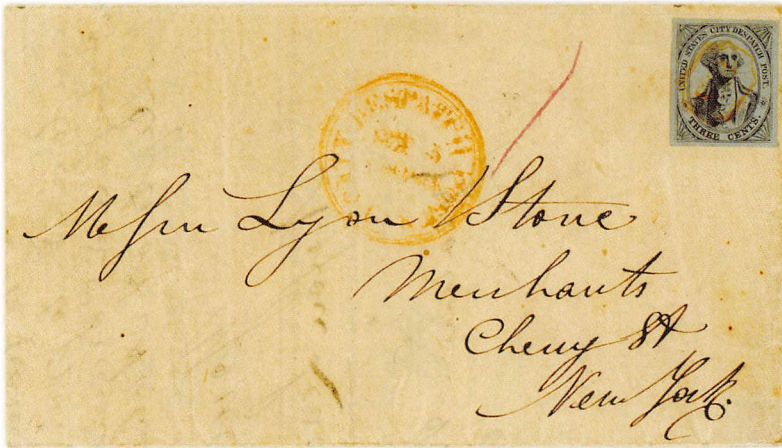 UNITED STATES CITY DESPATCH POST.
THREE CENTS.
CITY DESPATCH POST
Messrs Lyon Stone
Merchants
Cherry St
New York.